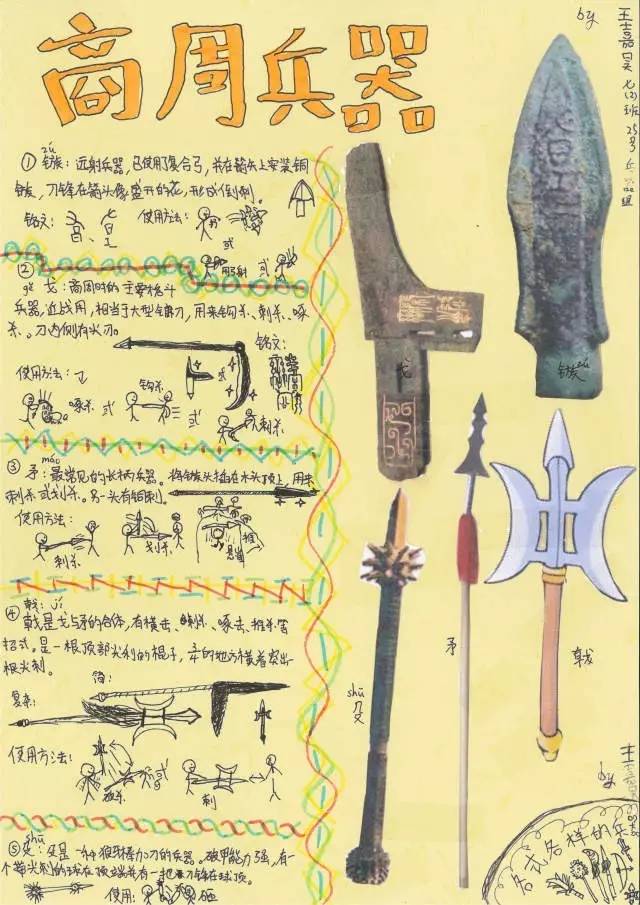 商周兵器
by 王嘉昊 七(2)班 25号 兵器组
zú
① 镞：远射兵器，已使用了复合弓，并在箭头上安装铜
镞，刀锋在箭头像盛开的花，形成倒刺。
铭文： 使用方法：
或
用弓射 或
② gē 戈：商周时的主要格斗
兵器，近战用，相当于大型镰刀，用来钩杀、刺杀、啄
杀。刀内侧有尖刃。
铭文：
使用方法：
啄杀 或 钩杀 或 刺杀
máo
③ 矛：最常见的长柄兵器。将镞头插在木头顶上，用来
刺杀或划杀。另一头有铜刺。
使用方法：
刺杀 划杀 推
④ 戟：jǐ
戟是戈与矛的合体，有横击、刺杀、啄击、推杀等
招式。是一根顶部尖利的棍子，的地方横着突出一
根尖刺。
简：
复杂：
使用方法：
或
刺
shū
⑤ 殳：殳是一种狼牙棒加刀的兵器。破甲能力强，有一
个带尖刺的球在顶端并有一把刀锋在球顶。
使用： 砸
镞 zú
戈
矛
戟
shū
殳
by 王
各式各样的兵